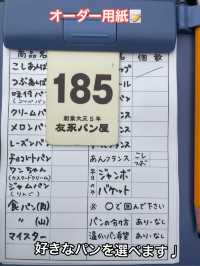 オーダー用紙📝
商品名
個数
こしあんぱ
つぶあんぱ
味付パン
クリームパ
メロンパン
レーズンパ
チョコントパン
ワンちゃん
(カスタードクリーム)
ジャムパン
(りんご)
食パン(角)
〃(山)
マイスター
185
創業大正5年
友永パン屋
ップ
あんフランス
こし
つぶ
ジャンボ
バケット
※ ○で囲んで下さい
パンの切り方
あり・なし
温かいパン希望
あり・なし
好きなパンを選べます♩